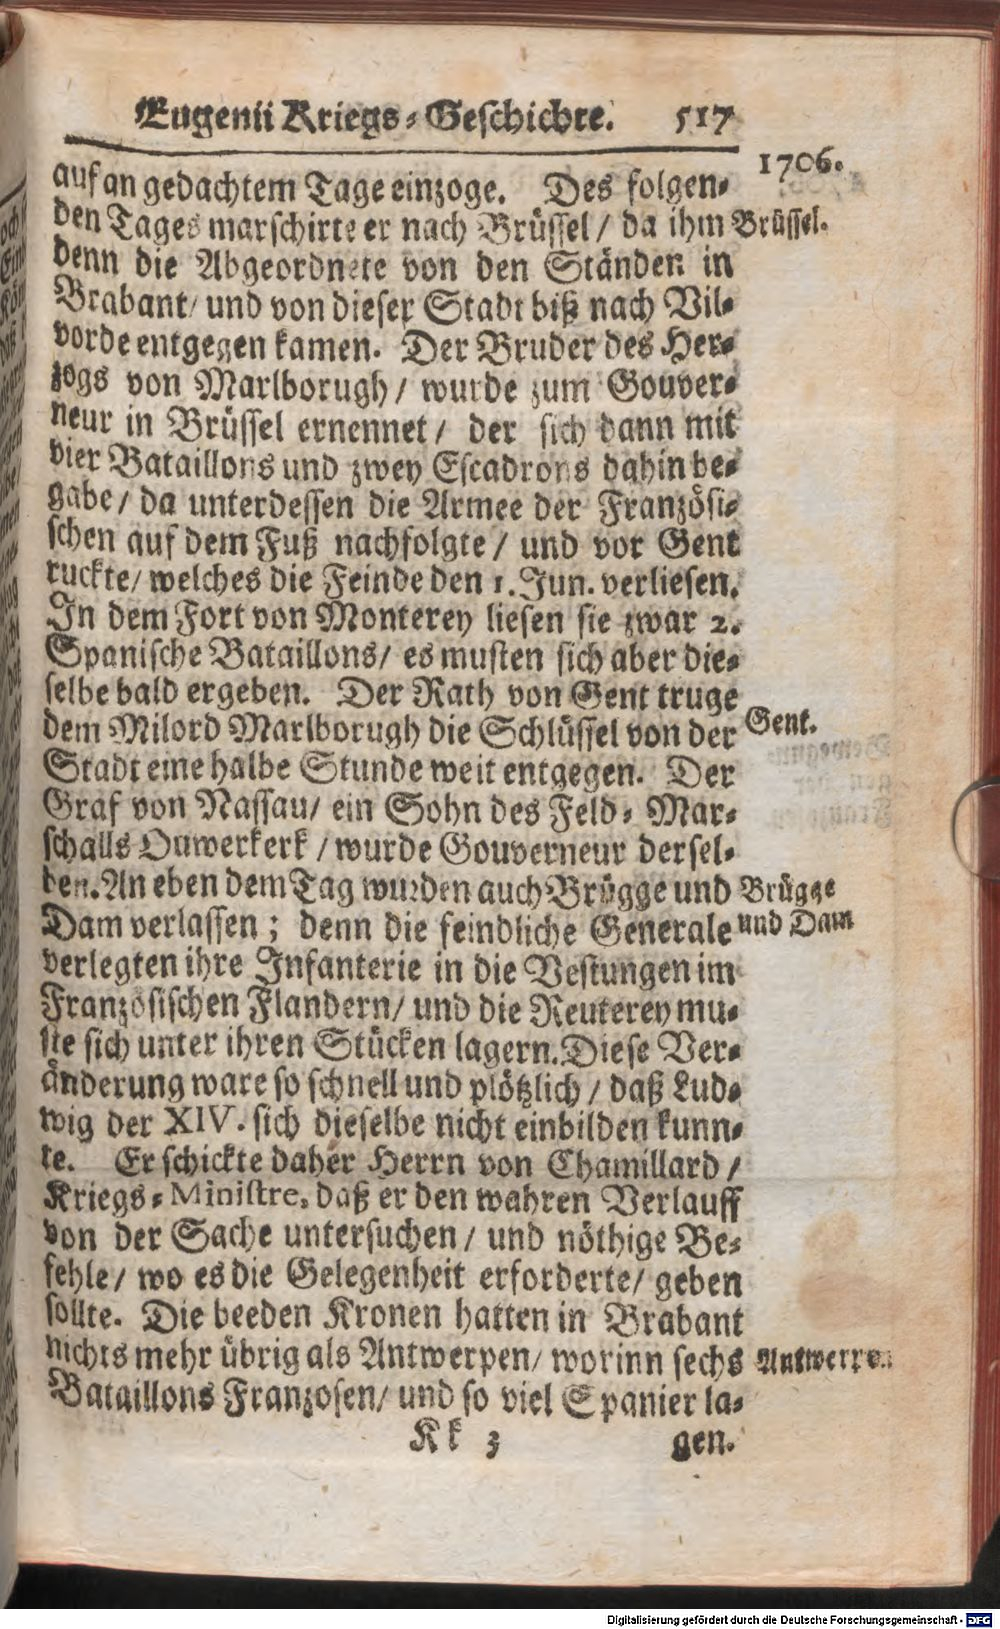 Eugenii Kriegs-Geschichte. 517
1706.
auf an gedachtem Tage einzoge. Des folgen-
den Tages marschirte er nach Brüssel / da ihm
Brüssel.
denn die Abgeordnete von den Ständen in
Brabant / und von dieser Stadt biß nach Vil-
vorde entgegen kamen. Der Bruder des Her-
zogs von Marlborugh / wurde zum Gouver-
neur in Brüssel ernennet / der sich dann mit
vier Bataillons und zwey Escadrons dahin be-
gabe / da unterdessen die Armee der Französi-
schen auf dem Fuß nachfolgte / und vor Gent
ruckte / welches die Feinde den 1. Jun. verliesen.
In dem Fort von Monterey liesen sie zwar 2.
Spanische Bataillons / es musten sich aber die-
selbe bald ergeben. Der Rath von Gent truge
dem Milord Marlborugh die Schlüssel von der
Gent.
Stadt eine halbe Stunde weit entgegen. Der
Graf von Nassau / ein Sohn des Feld-Mar-
schalls Ouwerkerk / wurde Gouverneur dersel-
ben. An eben dem Tag wurden auch Brügge und
Brügge
Dam verlassen ; denn die feindliche Generale
und Dam
verlegten ihre Infanterie in die Vestungen im
Französischen Flandern / und die Reuterey mu-
ste sich unter ihren Stücken lagern. Diese Ver-
änderung ware so schnell und plötzlich / daß Lud-
wig der XIV. sich dieselbe nicht einbilden kunn-
te. Er schickte daher Herrn von Chamillard /
Kriegs-Ministre, daß er den wahren Verlauff
von der Sache untersuchen / und nöthige Be-
fehle / wo es die Gelegenheit erforderte / geben
sollte. Die beeden Kronen hatten in Brabant
nichts mehr übrig als Antwerpen / worinn sechs
Antwerpen.
Bataillons Franzosen / und so viel Spanier la-
Kk 3 gen.
Digitalisierung gefördert durch die Deutsche Forschungsgemeinschaft - DFG